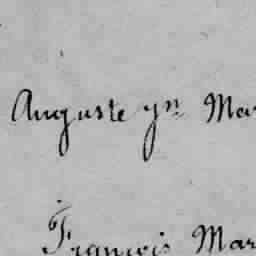 Auguste yn Mar
François Mar